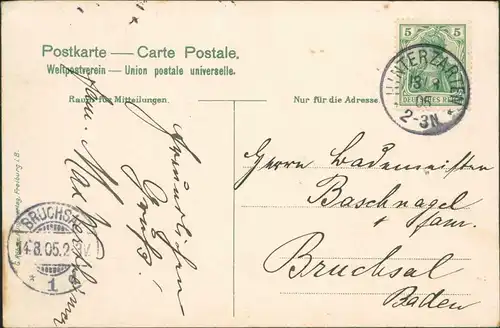 Postkarte — Carte Postale.
Weltpostverein — Union postale universelle.
Raum für Mitteilungen.
Nur für die Adresse.
5 5
DEUTSCHES REICH
HINTERZARTEN
2-3N
Herrn Bademeister
Baschnagel
u. Fam.
Bruchsal
Baden
Freundlichen
Gruß,
Fam. Max
BRUCHSAL
14.8.05.2
* 1
Freiburg i. B.